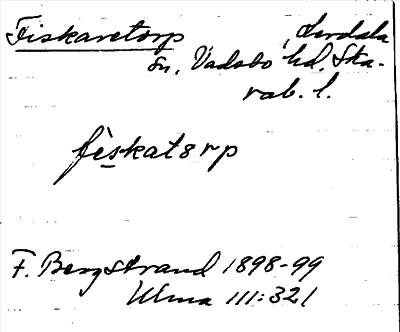 Fiskaretorp, Lerdala
sn, Vadsbo hd, Ska-
rab. l.
fèskatorp
F. Bergstrand 1898-99
Ulma 111:321